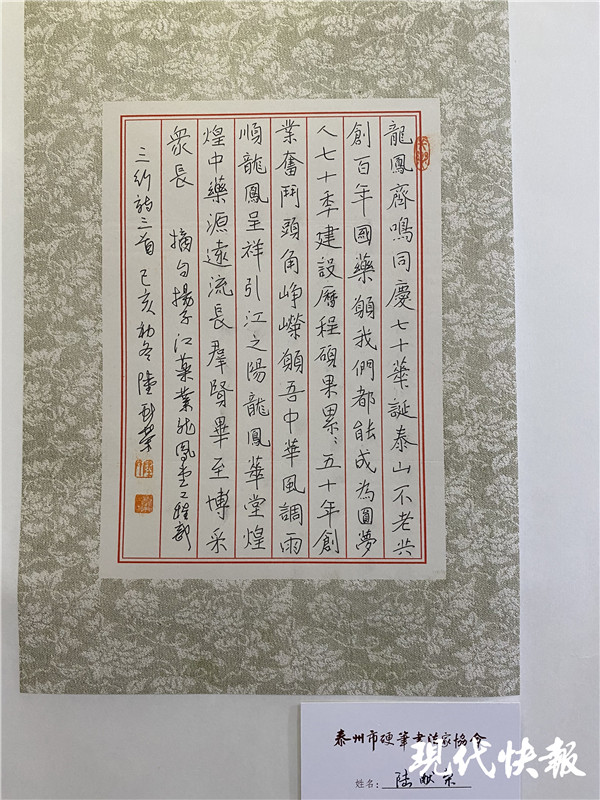 龍鳳齊鳴同慶七十華誕泰山不老共
創百年國藥願我們都能成為圓夢
人七十年建設曆程碩果累〻五十年創
業奮鬥頭角崢嶸願吾中華風調雨
順龍鳳呈祥引江之陽龍鳳華堂煌
煌中藥源遠流長羣賢畢至博采
衆長 摘自揚子江藥業龍鳳堂工程部
三行詩三首 己亥初冬 陸 榮
泰州市硬筆書法家協會
姓名: 陆 荣
现代快報